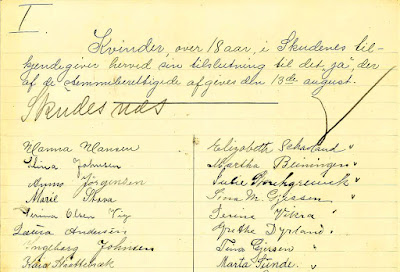 I.
Kvinder, over 18 aar, i Skudenes til-
kjendegiver herved sin tilslutning til det "ja", der
af de stemmeberettigede afgives den 13de august.
Skudesnæs
Hanna Hansen
Stina Johnsen
Anna Jörgensen
Maril
Serina Olsen Vig
Laura Andersen
Ingeborg Johnsen
Kaia
Elizabeth
Martha Beiningen "
Julie
Sina M. Gjessen "
Serine Vikra "
Grethe Dyrland "
Tina Gjersen "
Marta Tunde "